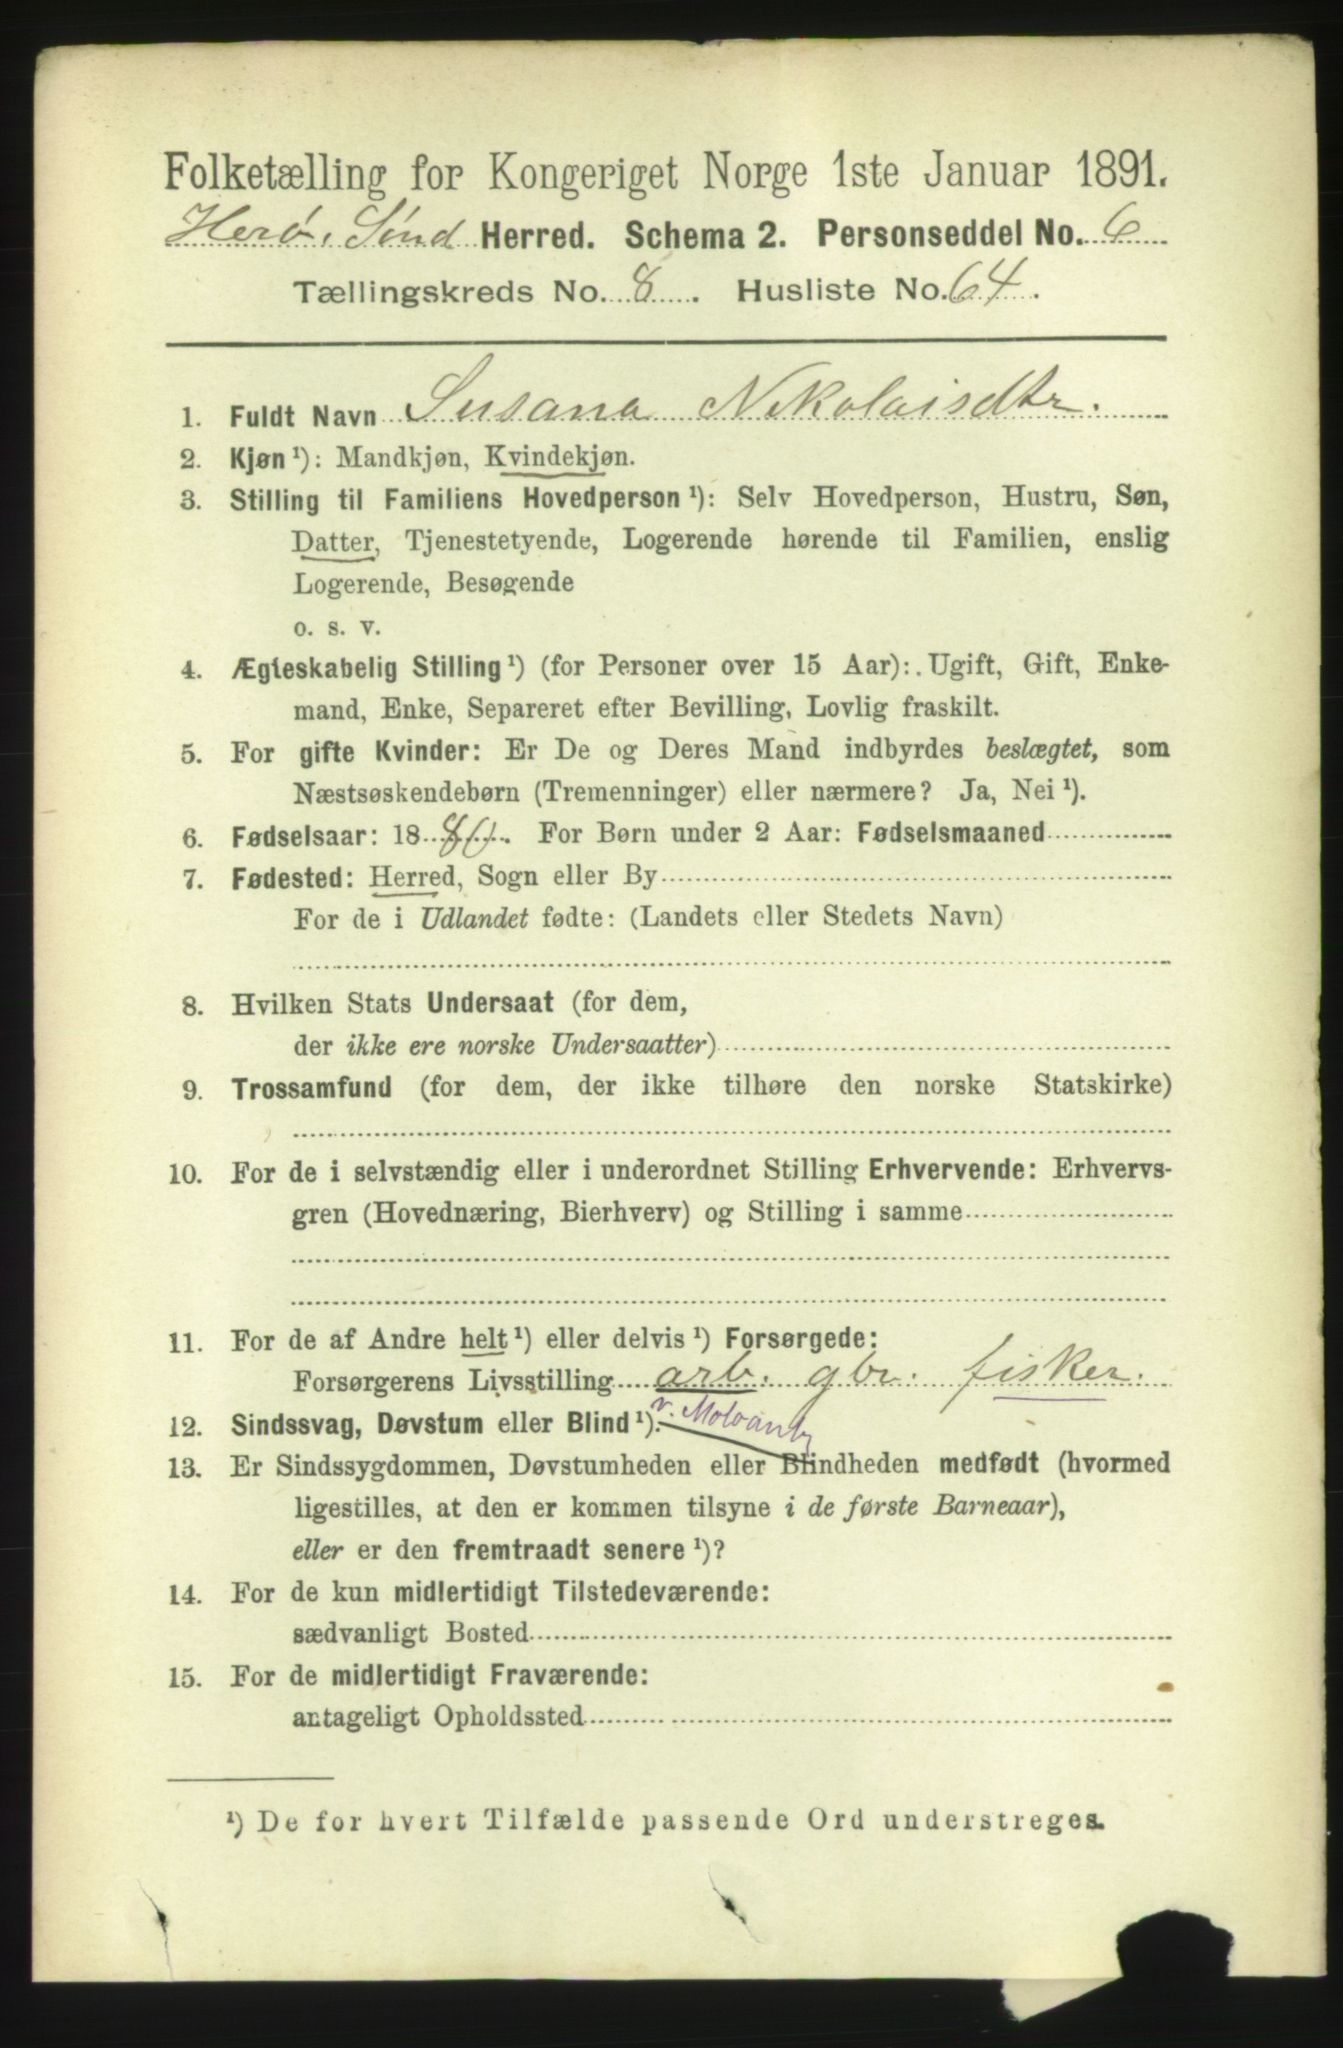 Folketælling for Kongeriget Norge 1ste Januar 1891.
Herø, Sönd Herred. Schema 2. Personseddel No. 6
Tællingskreds No. 8. Husliste No. 64.
1. Fuldt Navn Susana Nikolaisdtr.
2. Kjøn ¹): Mandkjøn, Kvindekjøn.
3. Stilling til Familiens Hovedperson ¹): Selv Hovedperson, Hustru, Søn,
Datter, Tjenestetyende, Logerende hørende til Familien, enslig
Logerende, Besøgende
o. s. v.
4. Ægteskabelig Stilling ¹) (for Personer over 15 Aar): Ugift, Gift, Enke-
mand, Enke, Separeret efter Bevilling, Lovlig fraskilt.
5. For gifte Kvinder: Er De og Deres Mand indbyrdes beslægtet, som
Næstsøskendebørn (Tremenninger) eller nærmere? Ja, Nei ¹).
6. Fødselsaar: 18 For Børn under 2 Aar: Fødselsmaaned
7. Fødested: Herred, Sogn eller By
For de i Udlandet fødte: (Landets eller Stedets Navn)
8. Hvilken Stats Undersaat (for dem,
der ikke ere norske Undersaatter)
9. Trossamfund (for dem, der ikke tilhøre den norske Statskirke)
10. For de i selvstændig eller i underordnet Stilling Erhvervende: Erhvervs-
gren (Hovednæring, Bierhverv) og Stilling i samme
11. For de af Andre helt ¹) eller delvis ¹) Forsørgede:
Forsørgerens Livsstilling arb. gbr. fisker.
12. Sindssvag, Døvstum eller Blind ¹). v.
13. Er Sindssygdommen, Døvstumheden eller Blindheden medfødt (hvormed
ligestilles, at den er kommen tilsyne i de første Barneaar),
eller er den fremtraadt senere ¹)?
14. For de kun midlertidigt Tilstedeværende:
sædvanligt Bosted
15. For de midlertidigt Fraværende:
antageligt Opholdssted
¹) De for hvert Tilfælde passende Ord understreges.